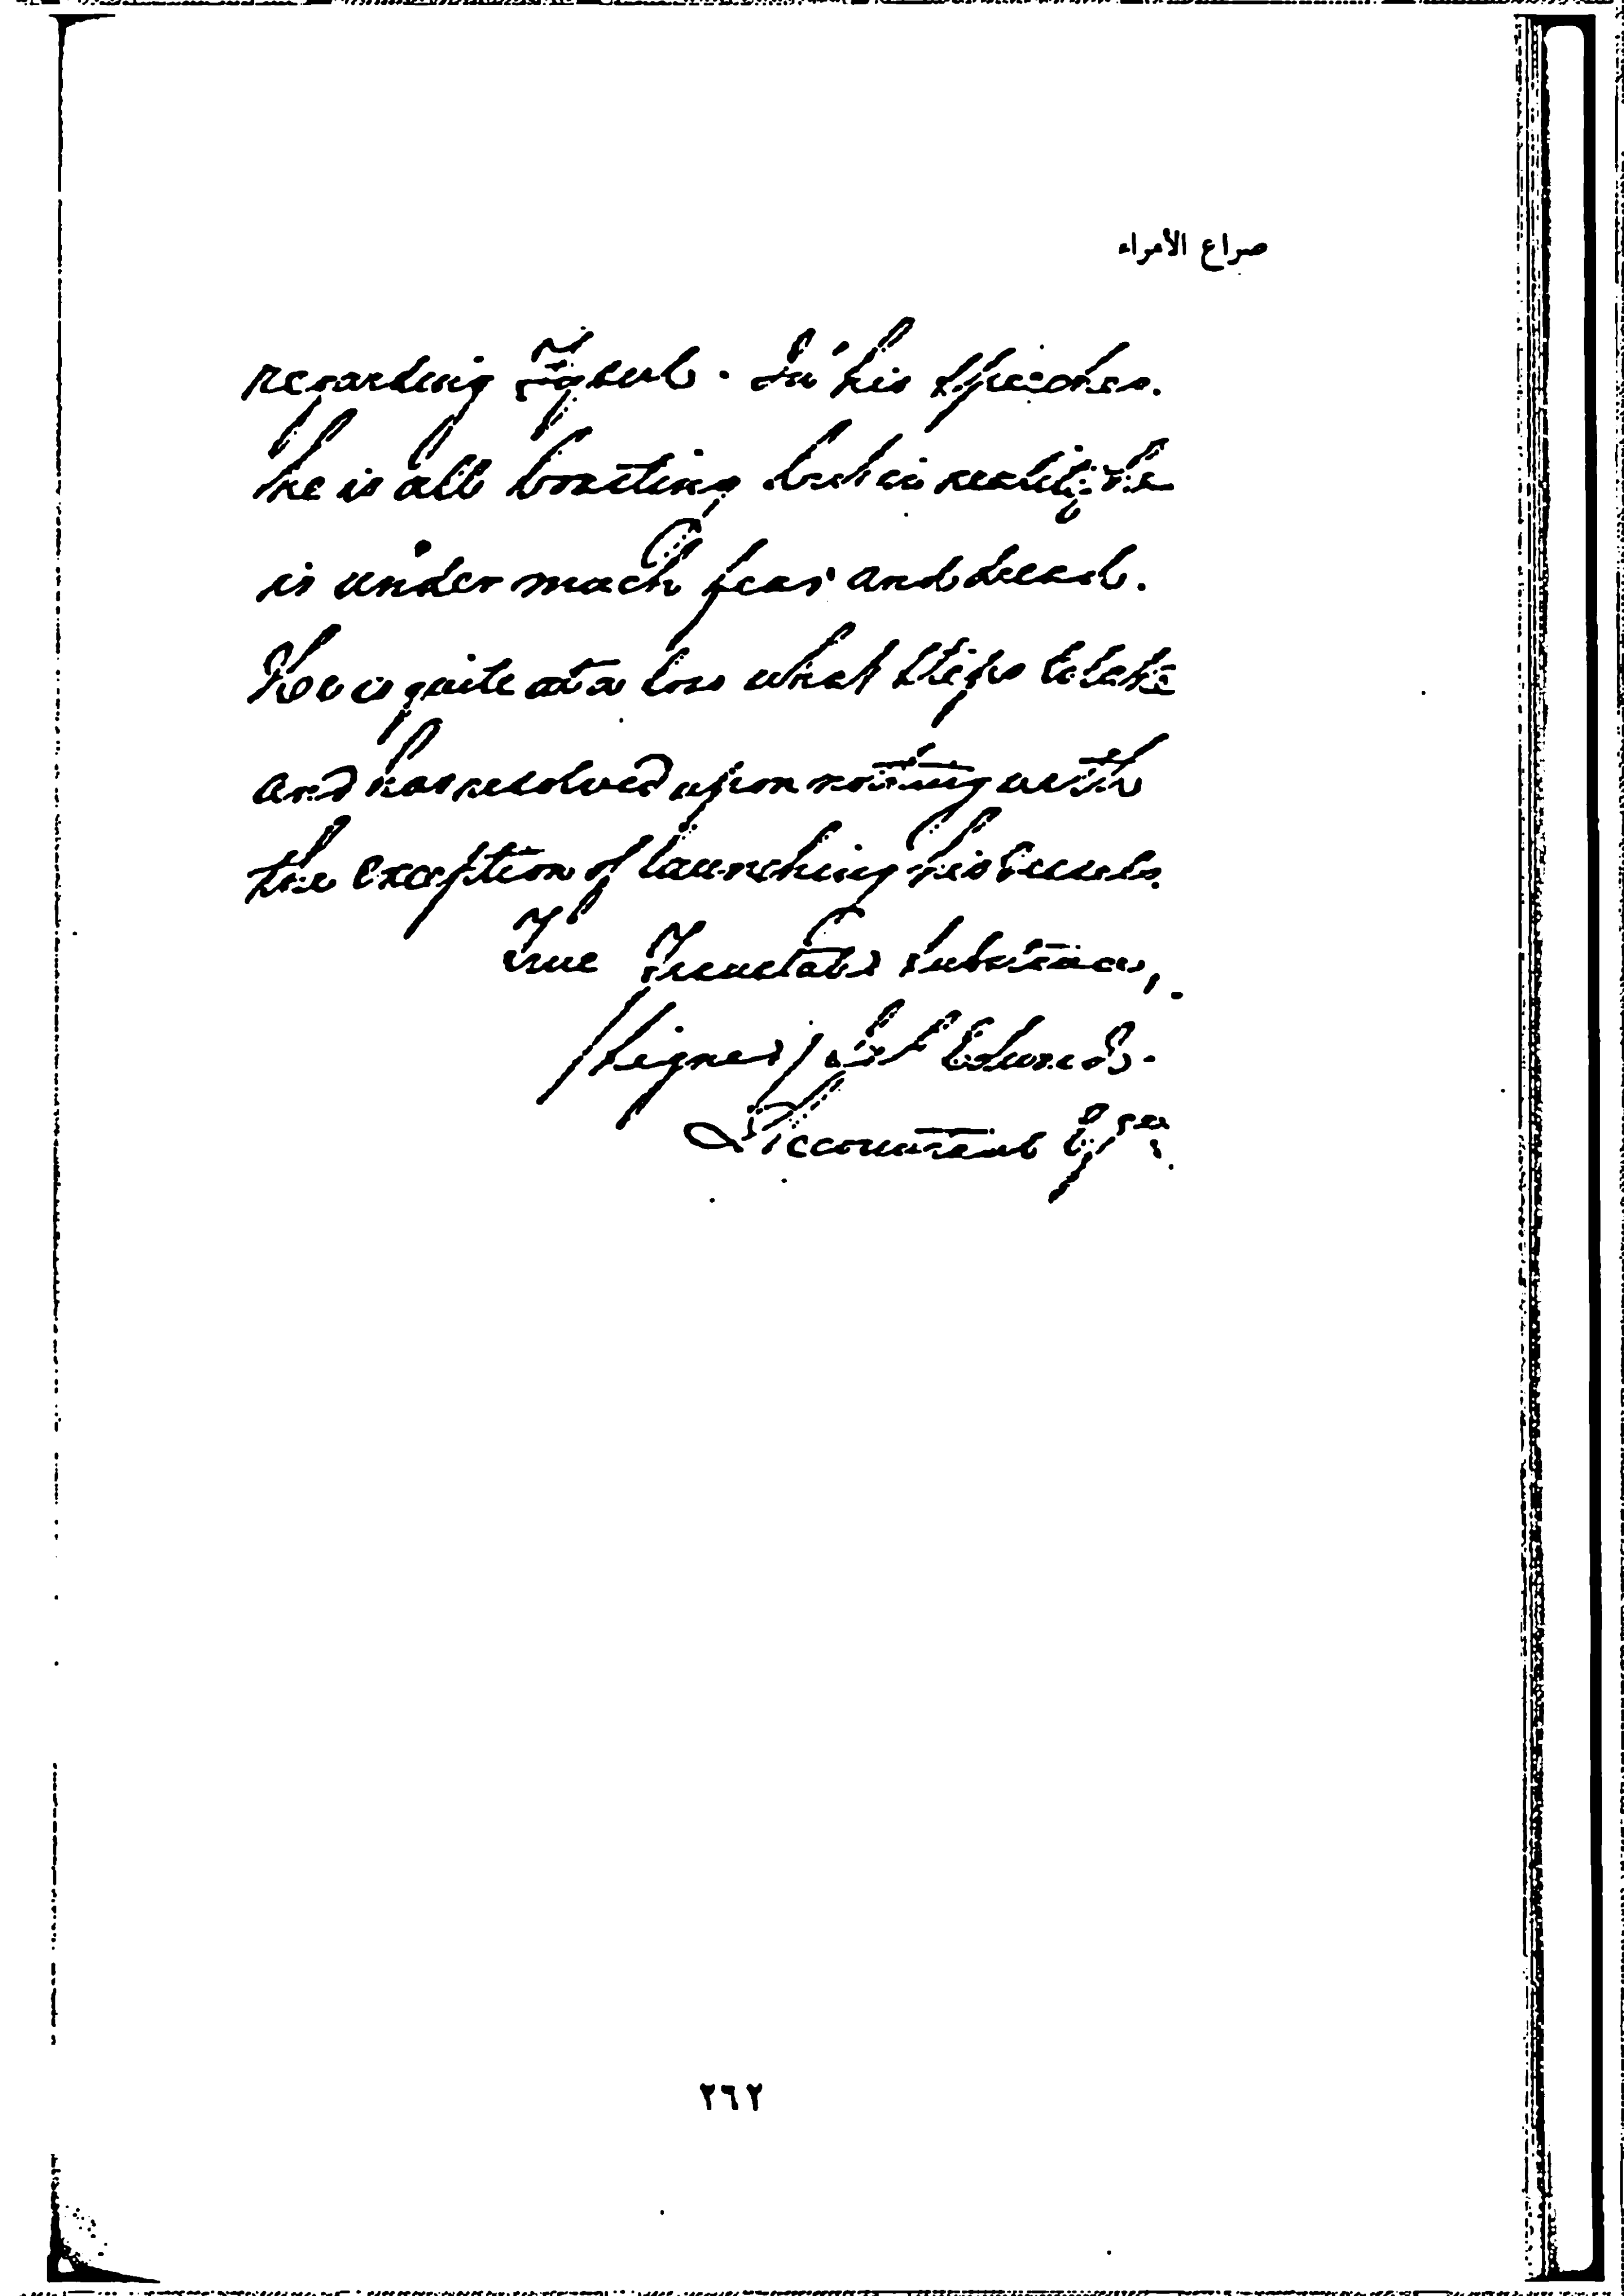 صراع الأمراء
regarding . In his speeches.
he is all boasting but in reality he
is under much fear and dread.
He is quite at a loss what steps to take
and has resolved upon nothing with
the exception of launching his
True Translated Substance,
/Signed/ Edwards.
Accountant
٢٦٢